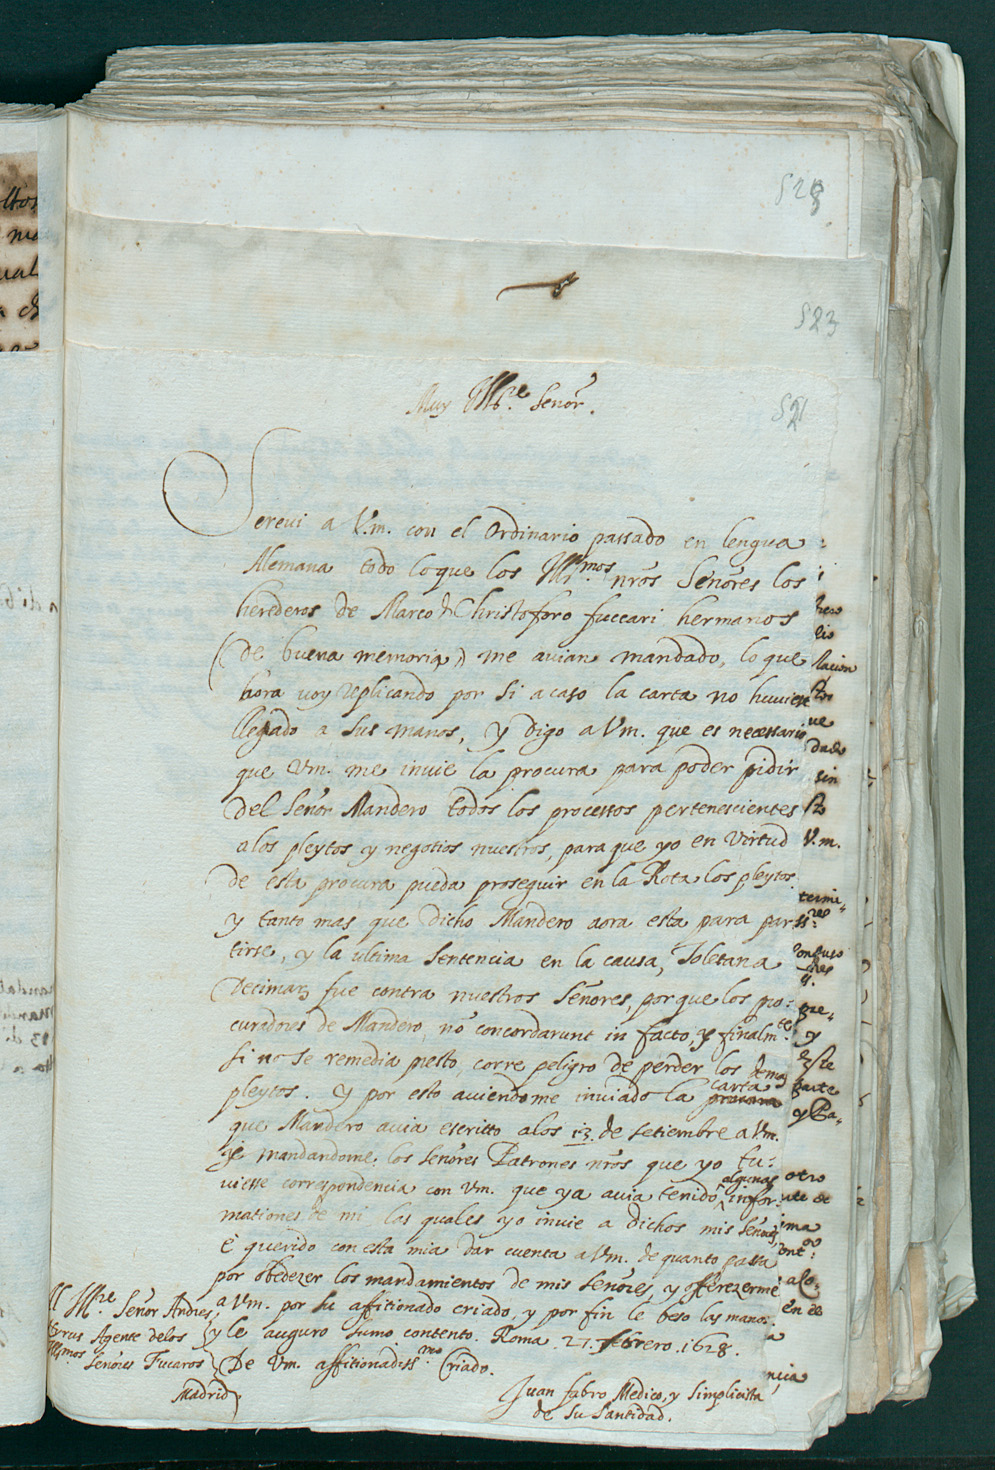 528
523
521
Muy Ill.re Señor.
Screui a V.m. con el Ordinario passado en lengua
Alemana todo loque los Ill.mos nros Señores los
herederos de Marco & Christoforo fuccari hermanos
(de buena memoria) me auian mandado, lo que
hora uoy replicando por si acaso la carta no huuiesse
llegado a sus manos, y digo a Vm. que es necessario
que Vm. me inuie la procura para poder pidir
del Señor Mandero todos los processos pertenescientes
alos pleytos y negotios nuestros, para que yo en virtud
de esta procura pueda proseguir en la Rota los pleytos
y tanto mas que dicho Mandero aora esta para par
tirse, y la ultima sentencia en la causa, Toletana
Decimar fue contra nuestros Señores, porque los pro:
curadores de Mandero, no concordarunt in facto, y finalm.te
si no se remedia presto, corre peligro de perder los demas
pleytos. Y por esto auiendome inuiado la carta
que Mandero auia escritto alos 13. de setiembre a Vm.
y mandandome los señores Patrones nros que yo tu:
uiesse correspondencia con Vm. que ya auia tenido algunas infor:
mationes de mi las quales yo inuie a dichos mis Señores,
è querido con esta mia dar cuenta a Vm. de quanto passa
por obedezer los mandamientos de mis señores, y offerezerme
a Vm. por su affitionado criado, y por fin le beso las manos.
y le auguro sumo contento. Roma 27. febrero .1628.
De Vm. affitionadiss.mo Criado.
Juan fabro Medico, y Simplicista
de Su Santidad.
Ill.re Señor Andres
Hyrus Agente delos
Ill.mos Señores Fucaros
Madrid
V.m.
y
este
parte
otro
en el